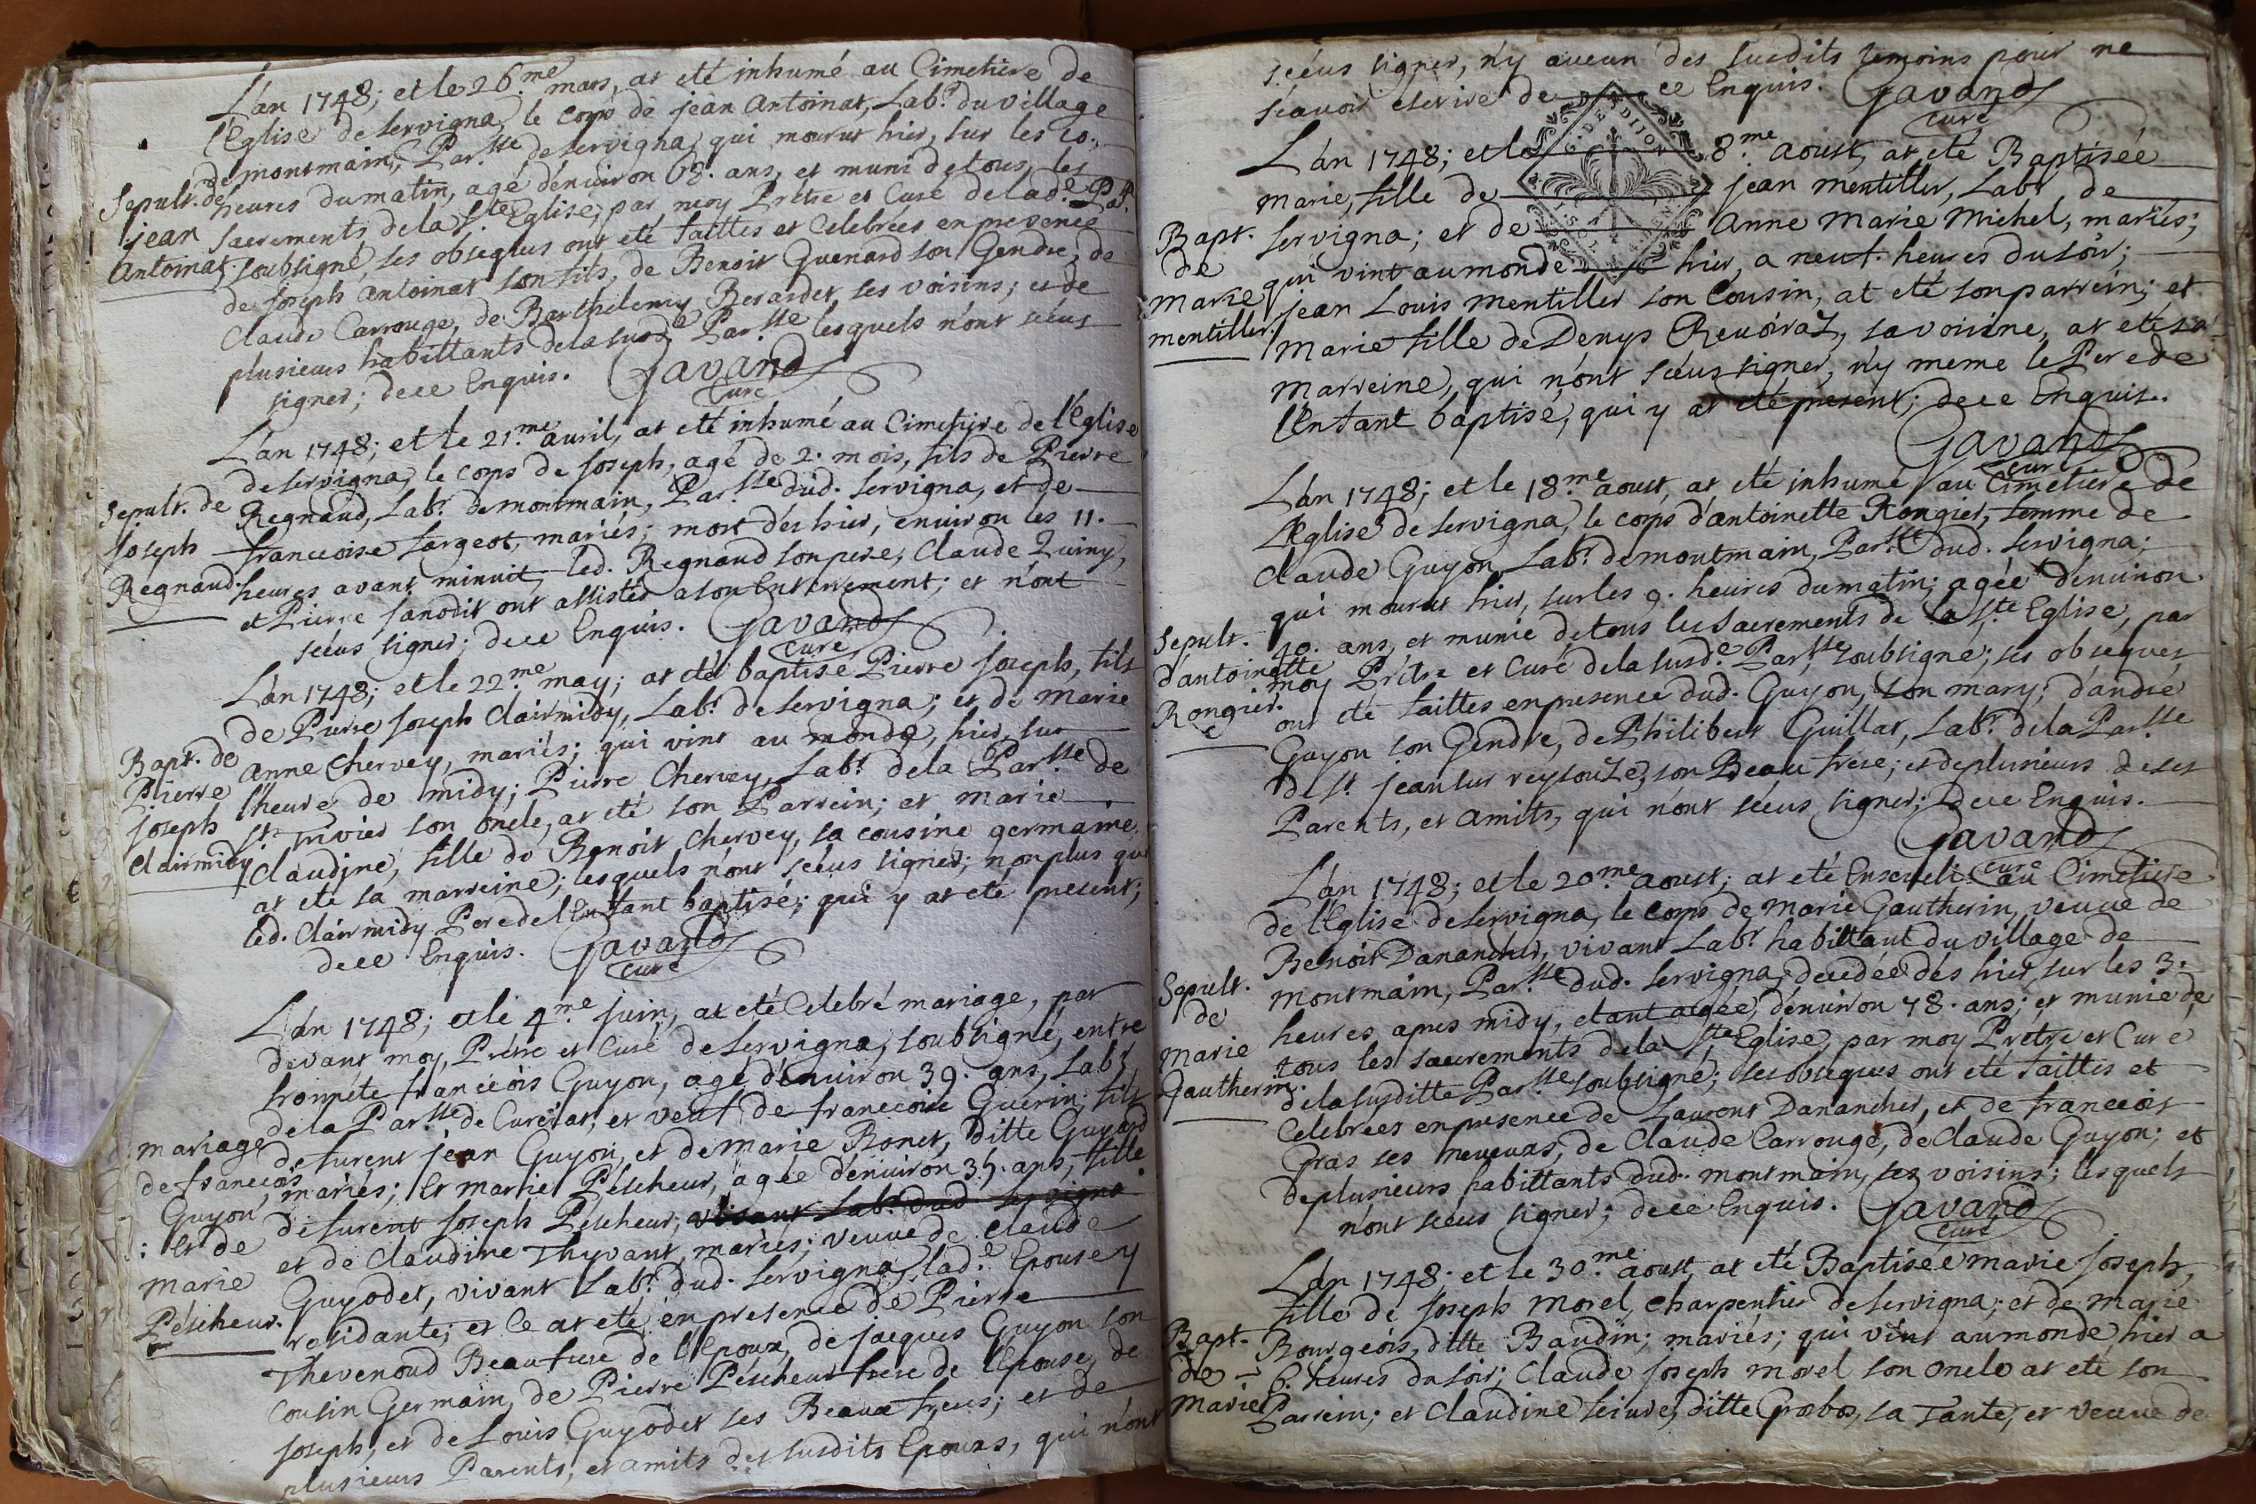 L'an 1748; et le 26.me mars, at eté inhumé au Cimetiere de
l'Eglise de servigna, le corps de jean Antoinat, Lab.r du village
de montmain, Par.sse de servigna, qui mourut hier, sur les 10.
heures du matin, agé d'environ 68. ans, et muni de tous les
sacrements de la S.te Eglise, par moy Prêtre et Curé de lad.e Par.
soubsigné, ses obseques ont eté faittes et Celebrées en presence
de Joseph antoinat son fils, de Benoit Guenard son Gendre, de
Claude Carrouge, de Barthelemy Berardet, ses voisins; et de
plusieurs habittants de la susd.e Par.sse lesquels n'ont scéus
signer; de ce Enquis. Gavand
curé
Sepult. de
jean
Antoinat.
L'an 1748; et le 21.me avril, at eté inhumé au Cimetiere de l'Eglise
de servigna, le corps de Joseph, agé de 2. mois, fils de Pierre
Regnaud, Lab.r de montmain, Par.sse dud. servigna, et de
francoise fargeot, mariés; mort dés hier, environ les 11.
heures avant minuit, led. Regnaud son pere, Claude Quiny,
et Pierre Janodit ont assistés a son Enterrement; et n'ont
scéus signer; de ce Enquis. Gavand
curé
Sepult. de
Joseph
Regnaud.
L'an 1748; et le 22.me may; at eté baptisé Pierre joseph, fils
de Pierre Joseph Clairmidy, Lab.r de servigna; et de Marie
Anne Chervey, mariés; qui vint au monde, hier, sur
l'heure de midy; Pierre Chervey, Lab.r de la Par.sse de
S.t Trivier son oncle, at eté son Parrein; et marie
Claudine, fille de Benoit Chervey, sa cousine germaine
at eté sa marreine; lesquels n'ont scéus signer; non plus que
led. Clairmidy Pere de l'Enfant baptisé; qui y at eté present;
de ce Enquis. Gavand
curé
Bapt. de
Pierre
joseph
Clairmidy
L'an 1748; et le 4.me juin, at eté Celebré mariage, par
devant moy, Prêtre et Curé de servigna, soubsigné, entre
honnete francois Guyon, agé d'environ 39. ans, Lab.r
de la Par.sse de Curciat; et veuf de francoise Guerin; fils
de furent jean Guyon, et de Marie Bonet, ditte Guyard
mariés; et marie Péscheur, agée d'environ 35. ans, fille
de furent Joseph Péscheur, vivant Lab.r dud. servigna
et de Claudine Thyvant, mariés; veuve de Claude
Guyodet, vivant Lab.r dud. servigna, lad.e Epouse y
residante; et ce at eté en presence de Pierre
Thevenoud Beaufrere de l'Epoux, de jacques Guyon son
cousin Germain, de Pierre Péscheur frere de l'Epouse, de
Joseph, et de Louis Guyodet ses Beaux freres; et de
plusieurs Parents, et amits des susdits Epouxs, qui n'ont
mariage
de francois
Guyon
; et de
Marie
Péscheur.
scéus signer, n'y aucun des susdits temoins pour ne
scavoir escrire de ce Enquis. Gavand
curé
G. DE DIJON
L'an 1748; et le 8.me aoust, at eté Baptisée
marie, fille de jean mentiller, Lab.r de
servigna; et de Anne Marie Michel, mariés;
qui vint au monde hier, a neuf heures du soir;
jean Louis mentiller son Cousin, at eté son parrein; et
Marie fille de Denys Revoiraz, sa voisine, at eté sa
marreine, qui n'ont scéus signer, n'y meme le Pere de
l'Enfant baptisé, qui y at eté present; de ce Enquis.
Gavand
curé
Bapt.
de
Marie
mentiller.
L'an 1748; et le 18.me aoust, at eté inhumé au Cimetiere de
L'Eglise de servigna, le corps d'antoinette Rongier, femme de
Claude Guyon, Lab.r de montmain, Par.sse dud. servigna;
qui mourut hier, sur les 9. heures du matin; agée d'environ
40. ans, et munie de tous les sacrements de la S.te Eglise, par
moy Prêtre et Curé de la susd.e Par.sse soubsigné; ses obseques
ont eté faittes en presence dud. Guyon, son mary; d'andré
Guyon son Gendre, de Philibert Guillat, Lab.r de la Par.sse
de S.t jean sur reysouze, son Beau frere; et de plusieurs de ses
Parents, et amits, qui n'ont scéus signer; de ce Enquis.
Gavand
curé
Sepult.
d'antoinette
Rongier.
L'an 1748; et le 20.me aoust; at eté Enseveli au Cimetiere
de l'Eglise de servigna, le corps de Marie Gautherin, veuve de
Benoit Danancher, vivant Lab.r habittant du village de
montmain, Par.sse dud. servigna, decedée dés hier, sur les 3.
heures apres midy, etant agée, d'environ 78. ans; et munie de
tous les sacrements de la S.te Eglise, par moy Prêtre et Curé
de la susditte Par.sse soubsigné; ses obseques ont eté faittes et
Celebrées en presence de Laurent Danancher, et de francois
Gras ses neveuxs, de Claude Carrouge, de Claude Guyon; et
de plusieurs habittants dud. montmain, ses voisins; lesquels
n'ont scéus signer; de ce Enquis. Gavand
curé
Sepult.
de
Marie
Gautherin.
L'an 1748; et le 30.me aoust, at eté Baptisée marie joseph,
fille de Joseph Morel, charpentier de servigna; et de Marie
Bourgeois, ditte Baudin; mariés; qui vint au monde hier a
6. heures du soir; Claude joseph morel son oncle at eté son
Parrein; et Claudine feivre, ditte Grobos, sa Tante, et veuve de
Bapt.
de
Marie